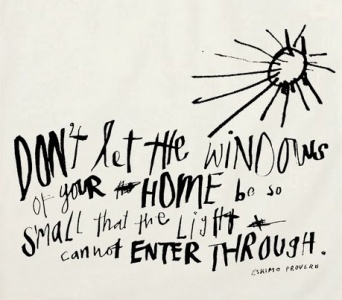 DON't let the WINDOWS
of your HOME be so
small that the Light
cannot ENTER THROUGH.
ESKIMO PROVERB